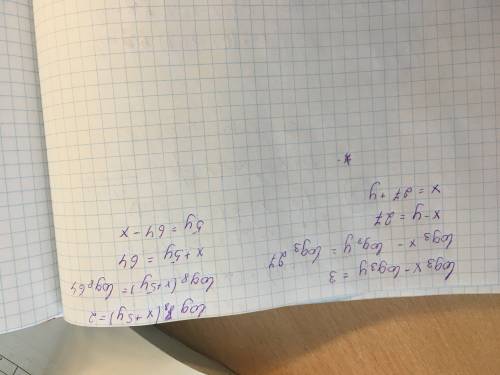 log₃ x - log₃ y = 3
log₃ x - log₃ y = log₃ 27
x - y = 27
x = 27 + y
log₈ (x + 5y) = 2
log₈ (x + 5y) = log₈ 64
x + 5y = 64
5y = 64 - x